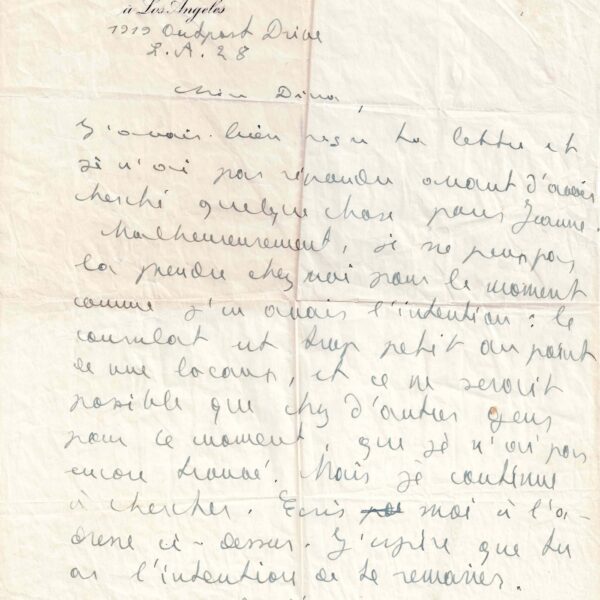 à Los Angeles
1919 Outpost Drive
L.A. 28
Dina,
J'avais bien reçu ta lettre et
je n'ai pas répondu avant d'avoir
cherché quelque chose pour Jeanne.
Malheureusement, je ne peux pas
la prendre chez moi pour le moment
comme j'en avais l'intention : le
consulat est trop petit au point
de vue locaux, et ce ne serait
possible que chez d'autres gens
pour ce moment, que je n'ai pas
encore trouvé. Mais je continue
à chercher. Ecris moi à l'a-
dresse ci-dessus. J'espère que tu
as l'intention de te remarier.